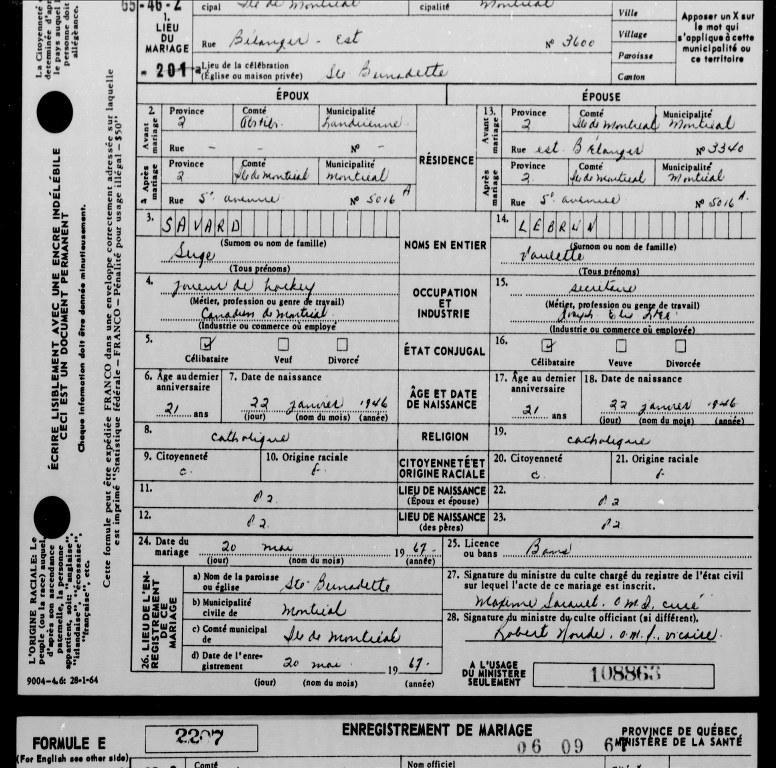 65-46-2
1. LIEU DU MARIAGE
cipal Ile de Montréal
cipalité Montréal
Ville
Village
Paroisse
Canton
Apposer un X sur le mot qui s'applique à cette municipalité ou ce territoire
Rue Bélanger - Est No 3600
- 201a Lieu de la célébration (Église ou maison privée) Ste Bernadette
ÉPOUX
ÉPOUSE
2. Avant mariage
Province Comté Municipalité
2 Landrienne
Rue - - No -
Après mariage
Province Comté Municipalité
2 Ile de Montréal Montréal
Rue 5e avenue No 5016 A
RÉSIDENCE
13. Avant mariage
Province Comté Municipalité
2 Ile de Montréal Montréal
Rue est Bélanger No 3340
Après mariage
Province Comté Municipalité
2. Ile de Montréal Montréal
Rue 5e avenue No 5016 A.
3. SAVARD
(Surnom ou nom de famille)
Serge
(Tous prénoms)
NOMS EN ENTIER
14. LEBRUN
(Surnom ou nom de famille)
Paulette
(Tous prénoms)
4. joueur de hockey
(Métier, profession ou genre de travail)
Canadien de Montréal
(Industrie ou commerce où employé)
OCCUPATION ET INDUSTRIE
15. secrétaire
(Métier, profession ou genre de travail)
(Industrie ou commerce où employée)
5. ☑ ☐ ☐
Célibataire Veuf Divorcé
ÉTAT CONJUGAL
16. ☑ ☐ ☐
Célibataire Veuve Divorcée
6. Âge au dernier anniversaire
21 ans
7. Date de naissance
22 janvier 1946
(jour) (nom du mois) (année)
ÂGE ET DATE DE NAISSANCE
17. Âge au dernier anniversaire
21 ans
18. Date de naissance
22 janvier 1946
(jour) (nom du mois) (année)
8. catholique
RELIGION
19. catholique
9. Citoyenneté
c.
10. Origine raciale
f.
CITOYENNETÉ ET ORIGINE RACIALE
20. Citoyenneté
c.
21. Origine raciale
f.
11. P2.
LIEU DE NAISSANCE
(Époux et épouse)
22. P2
12. P2.
LIEU DE NAISSANCE
(des pères)
23. P2
24. Date du mariage 20 mai 1967.
(jour) (nom du mois) (année)
25. Licence ou bans Bans
26. LIEU DE L'ENREGISTREMENT DE CE MARIAGE
a) Nom de la paroisse ou église Ste Bernadette
b) Municipalité civile de Montréal
c) Comté municipal de Ile de Montréal
d) Date de l'enregistrement 20 mai 1967.
(jour) (nom du mois) (année)
27. Signature du ministre du culte chargé du registre de l'état civil sur lequel l'acte de ce mariage est inscrit.
o.m.i. curé
28. Signature du ministre du culte officiant (si différent).
Robert o.m.i. vicaire.
A L'USAGE DU MINISTERE SEULEMENT
108863
9004-4.6: 28-1-64
ÉCRIRE LISIBLEMENT AVEC UNE ENCRE INDÉLÉBILE
CECI EST UN DOCUMENT PERMANENT
Chaque information doit être donnée minutieusement.
Cette formule peut être expédiée FRANCO dans une enveloppe correctement adressée sur laquelle
est imprimé "Statistique fédérale — FRANCO — Pénalité pour usage illégal — $50"
La Citoyenneté
déterminée d'apr
le pays auquel
personne doit
allégeance.
L'ORIGINE RACIALE: Le
peuple (ou la race) auquel,
d'après son ascendance
paternelle, la personne
appartient, soit: "anglaise",
"irlandaise", "écossaise",
"française", etc.
FORMULE E
(For English see other side)
2207
ENREGISTREMENT DE MARIAGE
06 09 67
PROVINCE DE QUÉBEC,
MINISTÈRE DE LA SANTÉ
Comté
Nom officiel